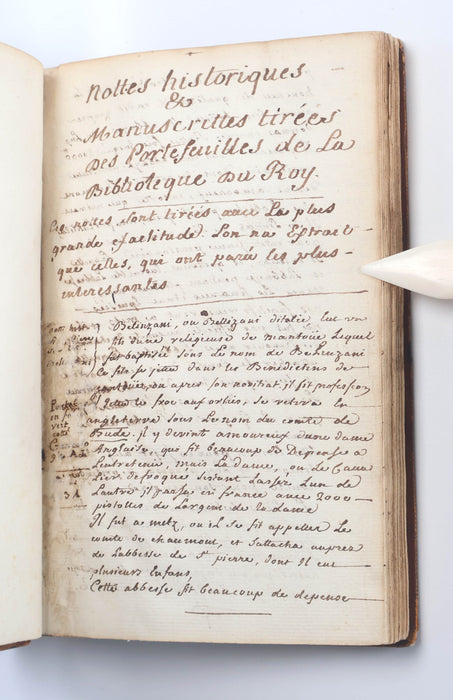 Nottes historiques
&
Manuscrittes tirées
Des Portefeuilles de La
Biblioteque Du Roy.
Ces nottes sont tirées avec La plus
grande exactitude L'on na Extrait
que celles, qui ont paru les plus
interessantes.
Belinzani, ou Bellizani d'italie Eut un
fils d'une religieuse de mantoüe Lequel
fut baptisé sous le nom de
Ce fils se jetta dans les Bénédictins de
mantoüe, ou apres son novitiat il fit profession
il jetta le froc aux orties, se retira En
angleterre sous Le nom du comte de
Bude. il y devint amoureux d'une dame
Anglaise, qui fit beaucoup de Depense a
L'entretenir, mais La dame, ou Le Cava
Lier defroqué s'etant Lassée L'un de
Lautre il passa en france avec 2000
pistolles de Largent de la dame
Il fut a metz, ou il se fit appeller Le
comte de chaumont, et sattacha aupres
de Labbesse de St pierre, dont Il eut
plusieurs Enfans,
Cette abbesse fit beaucoup de depense
31